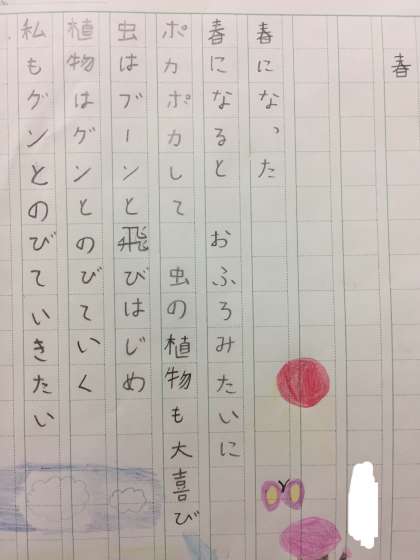 春
春になった
春になると　おふろみたいに
ポカポカして　虫の植物も大喜び
虫はブーンと飛びはじめ
植物はグンとのびていく
私もグンとのびていきたい